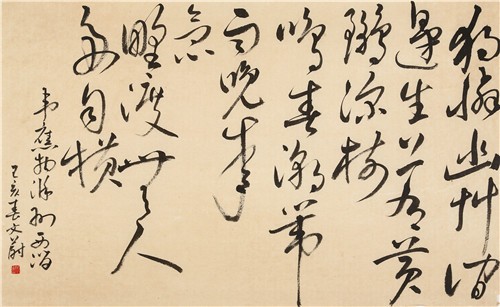 独憐幽艸澗
邊生上有黄
鸝深樹
鳴春潮帶
雨晚來
急
野渡無人
舟自横
韦應物滁州西澗
亥春文蔚